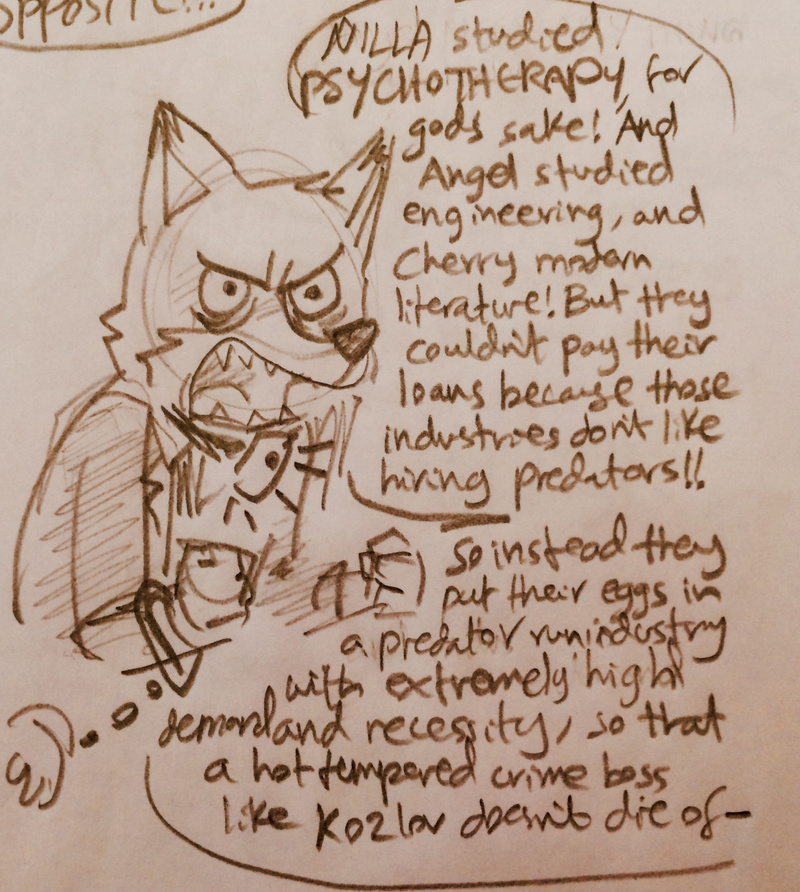 opposite...
NILLA studied
PSYCHOTHERAPY, for
gods sake! And
Angel studied
engineering, and
Cherry modern
literature! But they
couldn't pay their
loans because those
industries don't like
hiring predators!!
So instead they
put their eggs in
a predator run industry
with extremely high
demand and necessity, so that
a hot tempered crime boss
like Kozlov doesn't die of-